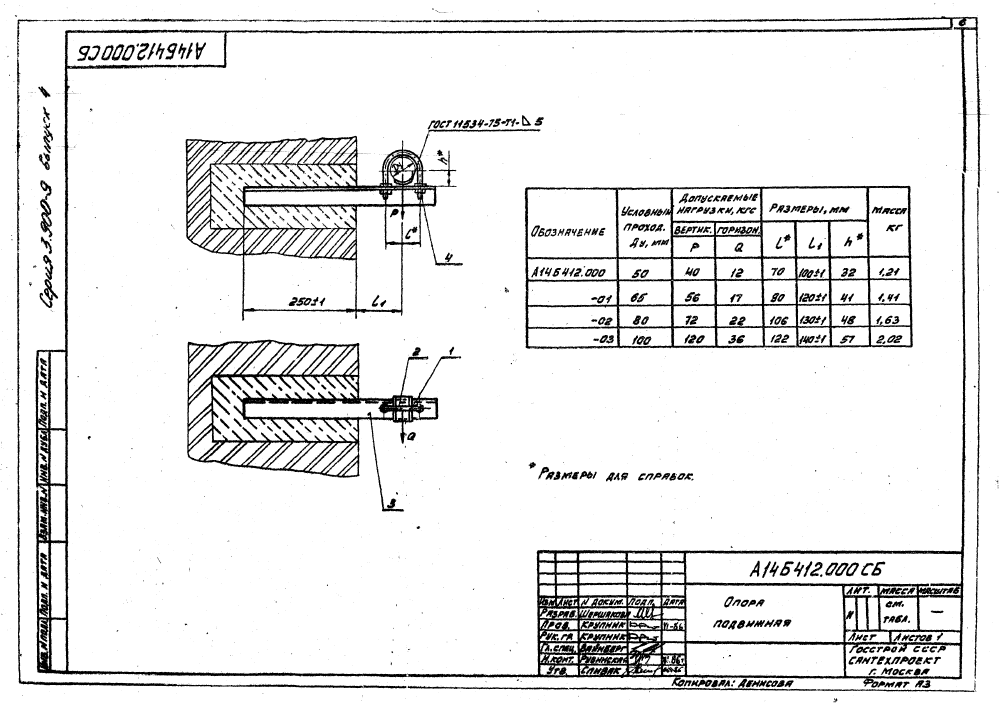 6
А14Б412.000 СБ
Серия 3.900-9 выпуск 4
ГОСТ 11534-75-Т1-⊿ 5
h*
P
C*
4
250±1
L1
2 1
Q
3
Обозначение
Условный проход. Ду, мм
Допускаемые нагрузки, кгс
Размеры, мм
Масса кг
вертик. P
горизон. Q
L* L1 h*
А14Б412.000 50 40 12 70 100±1 32 1,21
-01 65 56 17 90 120±1 41 1,41
-02 80 72 22 106 130±1 48 1,63
-03 100 120 36 122 140±1 57 2,02
* Размеры для справок.
Подп. и дата
Инв. N дубл.
Взам. инв. N
Подп. и дата
Инв. N подл.
А14Б412.000 СБ
Изм. Лист N докум. Подп. Дата
Разраб. Шершакова
Пров. Крупник 11-86
Рук. гр. Крупник
Гл. спец. Вайнберг
Н. конт. Рубинская
Утв. Спивак
Опора
подвижная
Лит. Масса Масштаб
И см. табл. —
Лист Листов 1
Госстрой СССР
Сантехпроект
г. Москва
Копировал: Денисова Формат А3